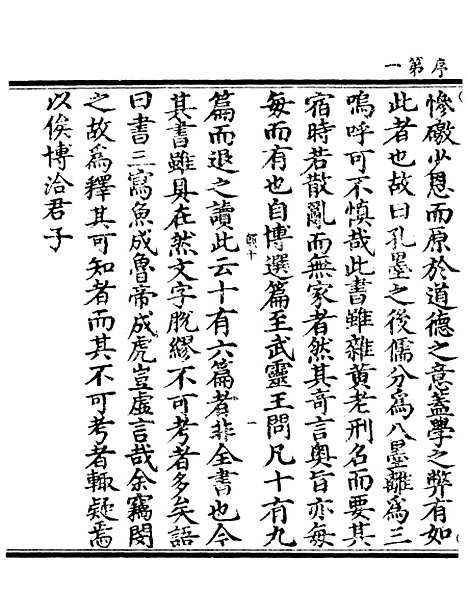 序第一
慘礉少恩而原於道德之意蓋學之弊有如
此者也故曰孔墨之後儒分爲八墨離爲三
嗚呼可不慎哉此書雖雜黃老刑名而要其
宿時若散亂而無家者然其奇言奥旨亦每
每而有也自博選篇至武靈王問凡十有九
篇而退之讀此云十有六篇者非全書也今
其書雖具在然文字脫繆不可考者多矣語
曰書三寫魚成魯帝成虎豈虛言哉余竊閔
之故爲釋其可知者而其不可考者輒疑焉
以俟博洽君子